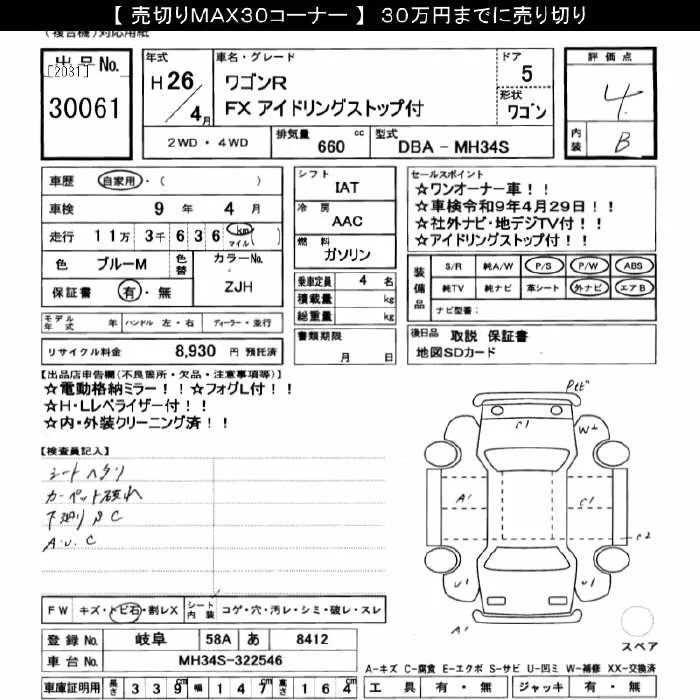 【 売切りMAX30コーナー 】 30万円までに売り切り
(複合機)対応用紙
出品No.
[2031]
30061
年式
H26/4月
車名・グレード
ワゴンR
FX アイドリングストップ付
ドア
5
形状
ワゴン
評価点
4
内装
B
2WD・4WD
排気量
660 cc
型式
DBA - MH34S
車歴 自家用・( )
車検 9 年 4 月
走行 11万 3千 636 km マイル ( )
色 ブルーM
色替
カラーNo.
ZJH
保証書 有・無
シフト
IAT
冷房
AAC
燃料
ガソリン
乗車定員 4 名
積載量 kg
総重量 kg
書類期限
月 日
セールスポイント
☆ワンオーナー車!!
☆車検令和9年4月29日!!
☆社外ナビ・地デジTV付!!
☆アイドリングストップ付!!
装備品
S/R 純A/W P/S P/W ABS
純TV 純ナビ 革シート 外ナビ エアB
ナビ型番:
モデル年式 年 ハンドル 左・右 ディーラー・並行
リサイクル料金 8,930 円 預託済
後日品 取説 保証書
地図SDカード
【出品店申告欄(不良箇所・欠品・注意事項等)】
☆電動格納ミラー!!☆フォグL付!!
☆H・Lレベライザー付!!
☆内・外装クリーニング済!!
【検査員記入】
シートヘタリ
カーペット破れ
下廻りSC
A.U.C
C1
W±
A1
C1
C2
U1
U1
A1
FW キズ・トビ石・割レX
シート内装 コゲ・穴・汚レ・シミ・破レ・スレ
登録No. 岐阜 58A あ 8412
車台No. MH34S-322546
車庫証明用 長さ 339cm 幅 147cm 高さ 164cm
スペア
A-キズ C-腐食 E-エクボ S-サビ U-凹ミ W-補修 XX-交換済
工具 有・無 ジャッキ 有・無